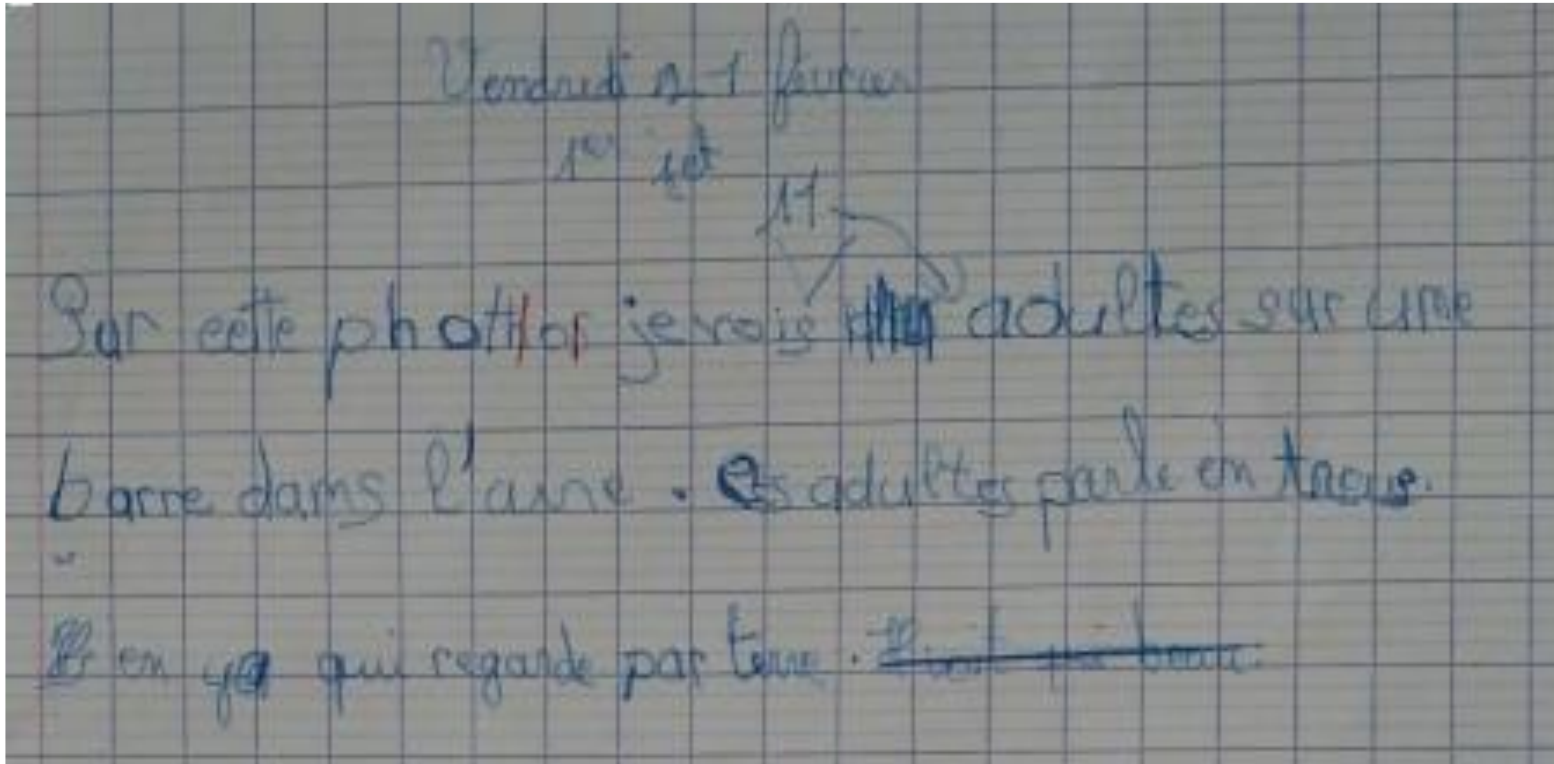 Vendredi 21 février
1er jet
11
Sur cette photo je vois adultes sur une
barre dans l'aire. es adultes parle en
en ya qui regarde par terre.